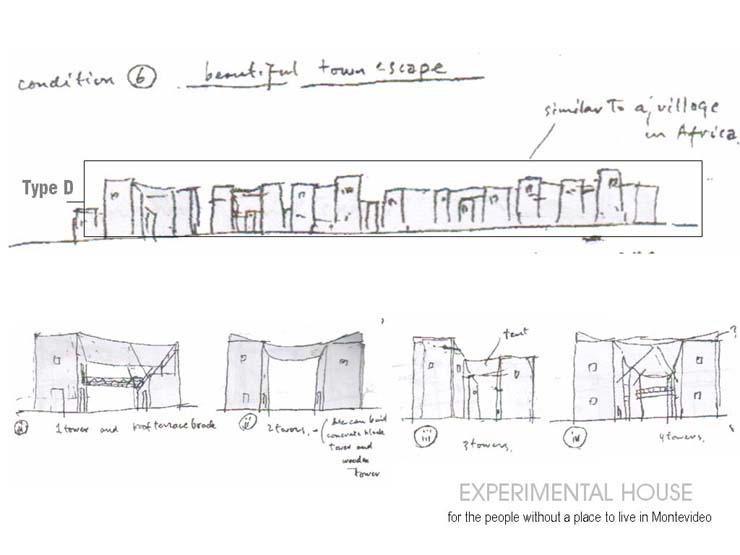 condition ⑥ beautiful town escape
similar to a village
in Africa.
Type D
tent
?
1 tower and roof terrace
ii 2 towers, - (we can build
concrete block
tower and
wooden
tower
iii 3 towers,
iv 4 towers,
EXPERIMENTAL HOUSE
for the people without a place to live in Montevideo